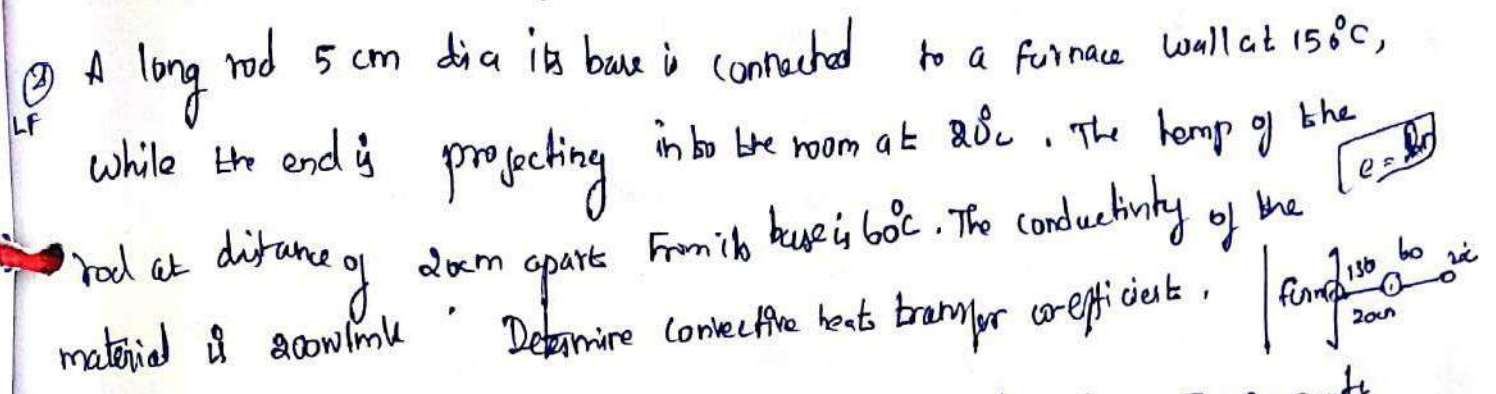 ② A long rod 5 cm dia its base is connected to a furnace wall at 150°C,
LF
while the end is projecting into the room at 20°c. The temp of the
rod at distance of 20cm apart from its base is 60°c. The conductivity of the
material is 200w/mk. Determine convective heat transfer co-efficient.
150 60 20°c
20cm